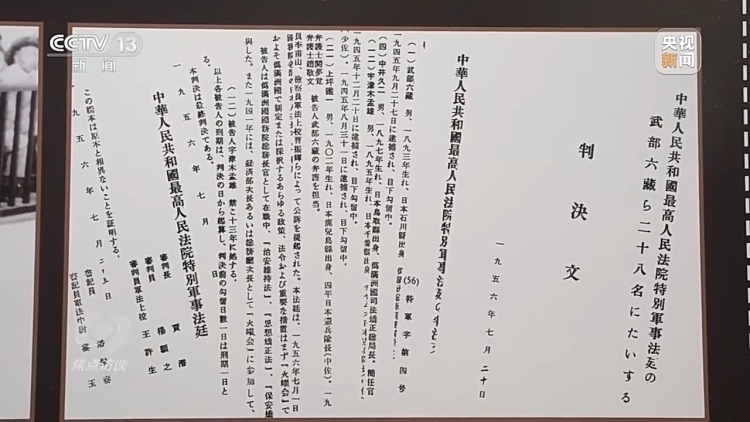 CCTV 13
新闻
央视
新闻
中華人民共和國最高人民法院特別軍事法廷の
武部六蔵ら二十八名にたいする
判決文
一九五六年七月二十日
中華人民共和國最高人民法院特別軍事法廷
(56) 将軍字第四号
(一) 武部六蔵 男、一八九三年生れ、日本石川縣出身
一九四五年九月二十七日に逮捕され、目下勾留中。
(四) 中井久二 男、一八九七年生れ、日本鳥取縣出身、偽滿洲國司法矯正総局長。簡任官
(一二) 宇津木孟雄 男、一八九五年生れ、日本千葉縣出身
一九四五年十二月二十日に逮捕され、目下勾留中。
(少佐)、一九四五年八月三十一日に逮捕され、目下勾留中。
(二二) 上坪鐵一 男、一九〇二年生れ、日本鹿児島縣出身、四平日本憲兵隊長(中佐)、一九
弁護士関夢覚 被告人武部六蔵の弁護を担当。
弁護士趙敬文
員李甫山、檢察員軍法上校曹振輝らによって公訴を提起された。本法廷は、一九五六年七月一日
被告人は偽滿洲國國務院総務長官として在職中、「治安維持法」、「思想矯正法」、「保安矯
およそ偽滿洲國で制定または採択するあらゆる政策、法令および重要な措置はまず「火曜会」で
與した。また一九四一年には、経済部次長あるいは総務廳次長として「火曜会」に参加して、
(一二) 被告人宇津木孟雄 禁こ十三年に処する。
以上各被告人の刑期は、判決の日から起算し、判決前の勾留日数一日は刑期一日と
る。
本判決は最終判決である。
一九五六年七月 日
中華人民共和國最高人民法院特別軍事法廷
審判長 賈潜
審判員 楊顕之
審判員軍法上校 王許生
この謄本は原本と相異ないことを証明する。
一九五六年七月二十五日
書記員
書記員軍法中尉
焦点访谈